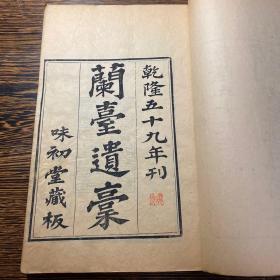 乾隆五十九年刊
蘭臺遺稾
味初堂藏板